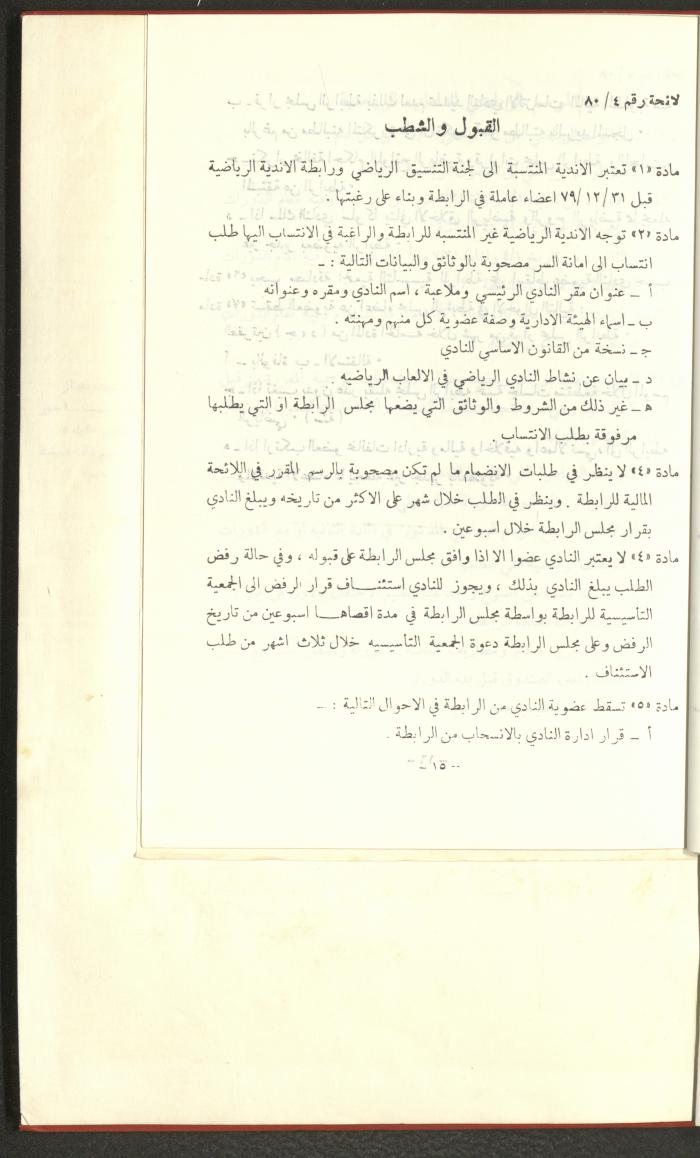 لائحة رقم ٤ / ٨٠
القبول والشطب
مادة «١» تعتبر الاندية المنتسبة الى لجنة التنسيق الرياضي ورابطة الاندية الرياضية
قبل ٣١/ ١٢/ ٧٩ اعضاء عاملة في الرابطة وبناء على رغبتها .
مادة «٢» توجه الاندية الرياضية غير المنتسبه للرابطة والراغبة في الانتساب اليها طلب
انتساب الى امانة السر مصحوبة بالوثائق والبيانات التالية : ـ
أ ـ عنوان مقر النادي الرئيسي وملاعبة ، اسم النادي ومقره وعنوانه
ب ـ اسماء الهيئة الادارية وصفة عضوية كل منهم ومهنته .
جـ ـ نسخة من القانون الاساسي للنادي
د ـ بيان عن نشاط النادي الرياضي في الالعاب الرياضيه .
هـ ـ غير ذلك من الشروط والوثائق التي يضعها مجلس الرابطة او التي يطلبها
مرفوقة بطلب الانتساب .
مادة «٤» لا ينظر في طلبات الانضمام ما لم تكن مصحوبة بالرسم المقرر في اللائحة
المالية للرابطة . وينظر في الطلب خلال شهر على الاكثر من تاريخه ويبلغ النادي
بقرار مجلس الرابطة خلال اسبوعين .
مادة «٤» لا يعتبر النادي عضوا الا اذا وافق مجلس الرابطة على قبوله ، وفي حالة رفض
الطلب يبلغ النادي بذلك ، ويجوز للنادي استئنـــاف قرار الرفض الى الجمعية
التأسيسية للرابطة بواسطة مجلس الرابطة في مدة اقصاهــا اسبوعين من تاريخ
الرفض وعلى مجلس الرابطة دعوة الجمعية التأسيسيه خلال ثلاث اشهر من طلب
الاستئناف .
مادة «٥» تسقط عضوية النادي من الرابطة في الاحوال التالية : ـ
أ ـ قرار ادارة النادي بالانسحاب من الرابطة .
ـ ١٥ ـ